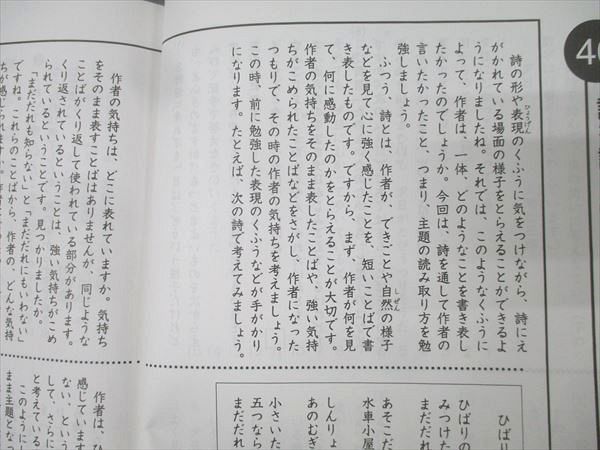 40
詩の形や表現のくふうに気をつけながら、詩にえ
ひょうげん
がかれている場面の様子をとらえることができるよ
うになりましたね。それでは、このようなくふうに
よって、作者は、一体、どのようなことを書き表し
たかったのでしょうか。今回は、詩を通して作者の
言いたかったこと、つまり、主題の読み取り方を勉
強しましょう。
ふつう、詩とは、作者が、できごとや自然の様子
しぜん
などを見て心に強く感じたことを、短いことばで書
き表したものです。ですから、まず、作者が何を見
て、何に感動したのかをとらえることが大切です。
作者の気持ちをそのまま表したことばや、強い気持
ちがこめられたことばなどをさがし、作者になった
つもりで、その時の作者の気持ちを考えましょう。
この時、前に勉強した表現のくふうなどが手がかり
になります。たとえば、次の詩で考えてみましょう。
ひばり
ひばりの
みつけた
まだだれ
あそこだ
水車小屋
しんりょ
あのむぎ
小さいた
五つなら
まだだれ
作者の気持ちは、どこに表れていますか。気持ち
をそのまま表すことばはありませんが、同じような
ことばがくり返して使われている部分があります。
くり返されているということは、強い気持ちがこめ
られているということです。見つかりましたか。
「まだだれも知らない」と「まだだれにもいわない」
ですね。これらのことばから、作者の、どんな気持
ちが感じられます
作者は、ひ
感じています
ない、という
して、さらに
と考えている
このようにし
まま主題となっ